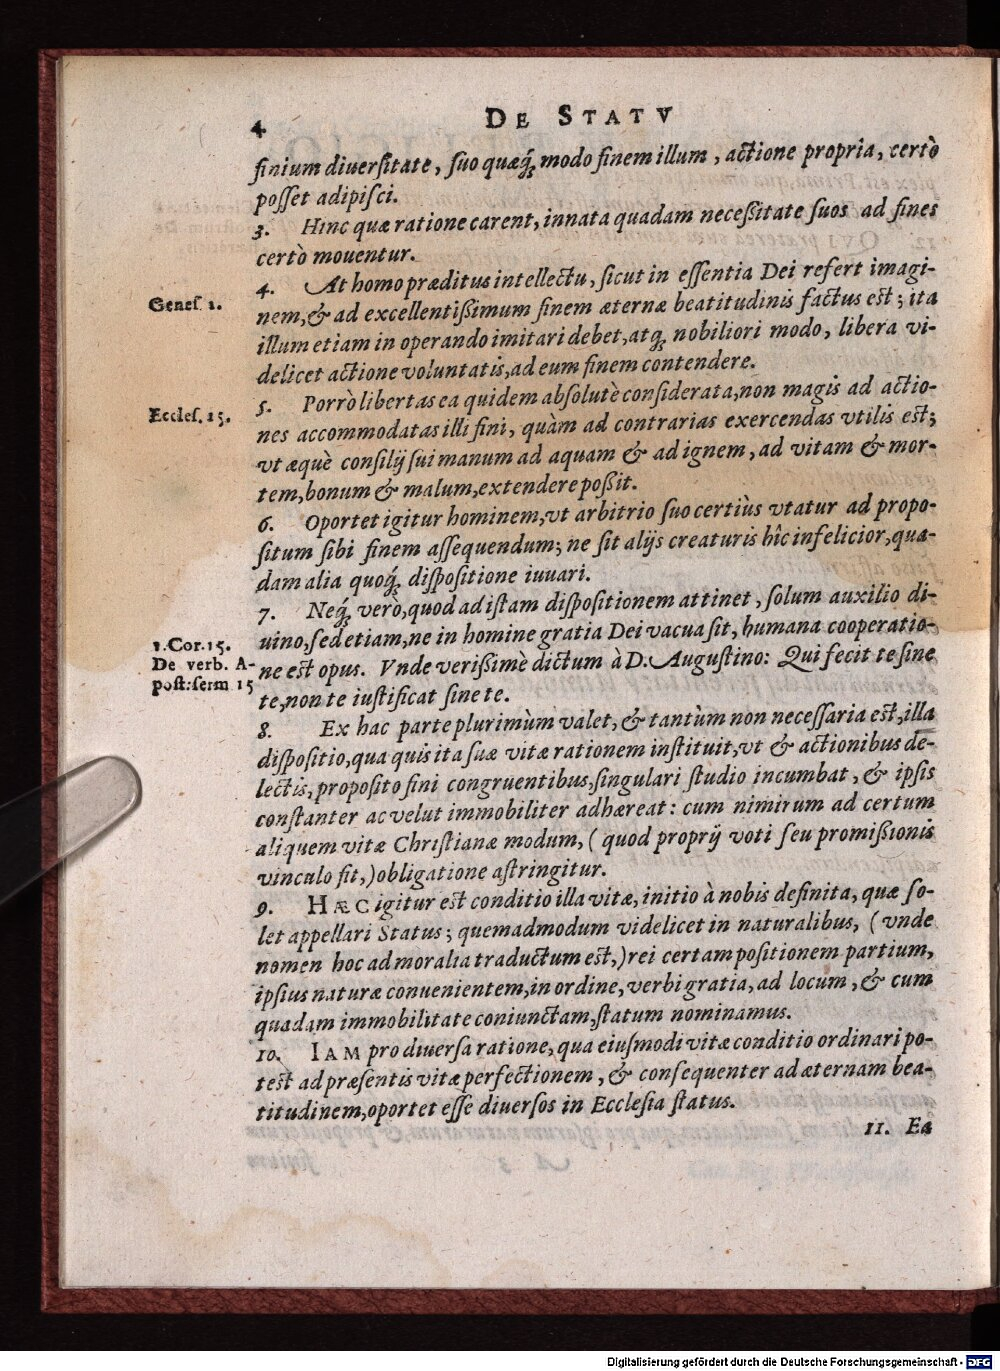 4 DE STATV
finium diuersitate, suo quæq́; modo finem illum, actione propria, certò
posset adipisci.
3. Hinc quæ ratione carent, innata quadam necessitate suos ad fines
certò mouentur.
4. At homo præditus intellectu, sicut in essentia Dei refert imagi-
Genes. 1.
nem, & ad excellentissimum finem æternæ beatitudinis factus est; ita
illum etiam in operando imitari debet, atq; nobiliori modo, libera vi-
delicet actione voluntatis, ad eum finem contendere.
5. Porrò libertas ea quidem absolutè considerata, non magis ad actio-
Eccles. 15.
nes accommodatas illi fini, quàm ad contrarias exercendas vtilis est;
vt æquè consilij sui manum ad aquam & ad ignem, ad vitam & mor-
tem, bonum & malum, extendere possit.
6. Oportet igitur hominem, vt arbitrio suo certiùs vtatur ad propo-
situm sibi finem assequendum; ne sit alijs creaturis hîc infelicior, qua-
dam alia quoq́; dispositione iuuari.
7. Neq́; verò, quod ad istam dispositionem attinet, solum auxilio di-
1. Cor. 15.
uino, sed etiam, ne in homine gratia Dei vacua sit, humana cooperatio-
De verb. A-
ne est opus. Vnde verissimè dictum à D. Augustino: Qui fecit te sine
post: serm 15
te, non te iustificat sine te.
8. Ex hac parte plurimùm valet, & tantùm non necessaria est, illa
dispositio, qua quis ita suæ vitæ rationem instituit, vt & actionibus de-
lectis, proposito fini congruentibus, singulari studio incumbat, & ipsis
constanter ac velut immobiliter adhæreat: cum nimirum ad certum
aliquem vitæ Christianæ modum, (quod proprij voti seu promissionis
vinculo fit,) obligatione astringitur.
9. HÆC igitur est conditio illa vitæ, initio à nobis definita, quæ so-
let appellari Status; quemadmodum videlicet in naturalibus, (vnde
nomen hoc ad moralia traductum est,) rei certam positionem partium,
ipsius naturæ conuenientem, in ordine, verbi gratia, ad locum, & cum
quadam immobilitate coniunctam, statum nominamus.
10. IAM pro diuersa ratione, qua eiusmodi vitæ conditio ordinari po-
test ad præsentis vitæ perfectionem, & consequenter ad æternam bea-
titudinem, oportet esse diuersos in Ecclesia status.
11. Ea
Digitalisierung gefördert durch die Deutsche Forschungsgemeinschaft - DFG